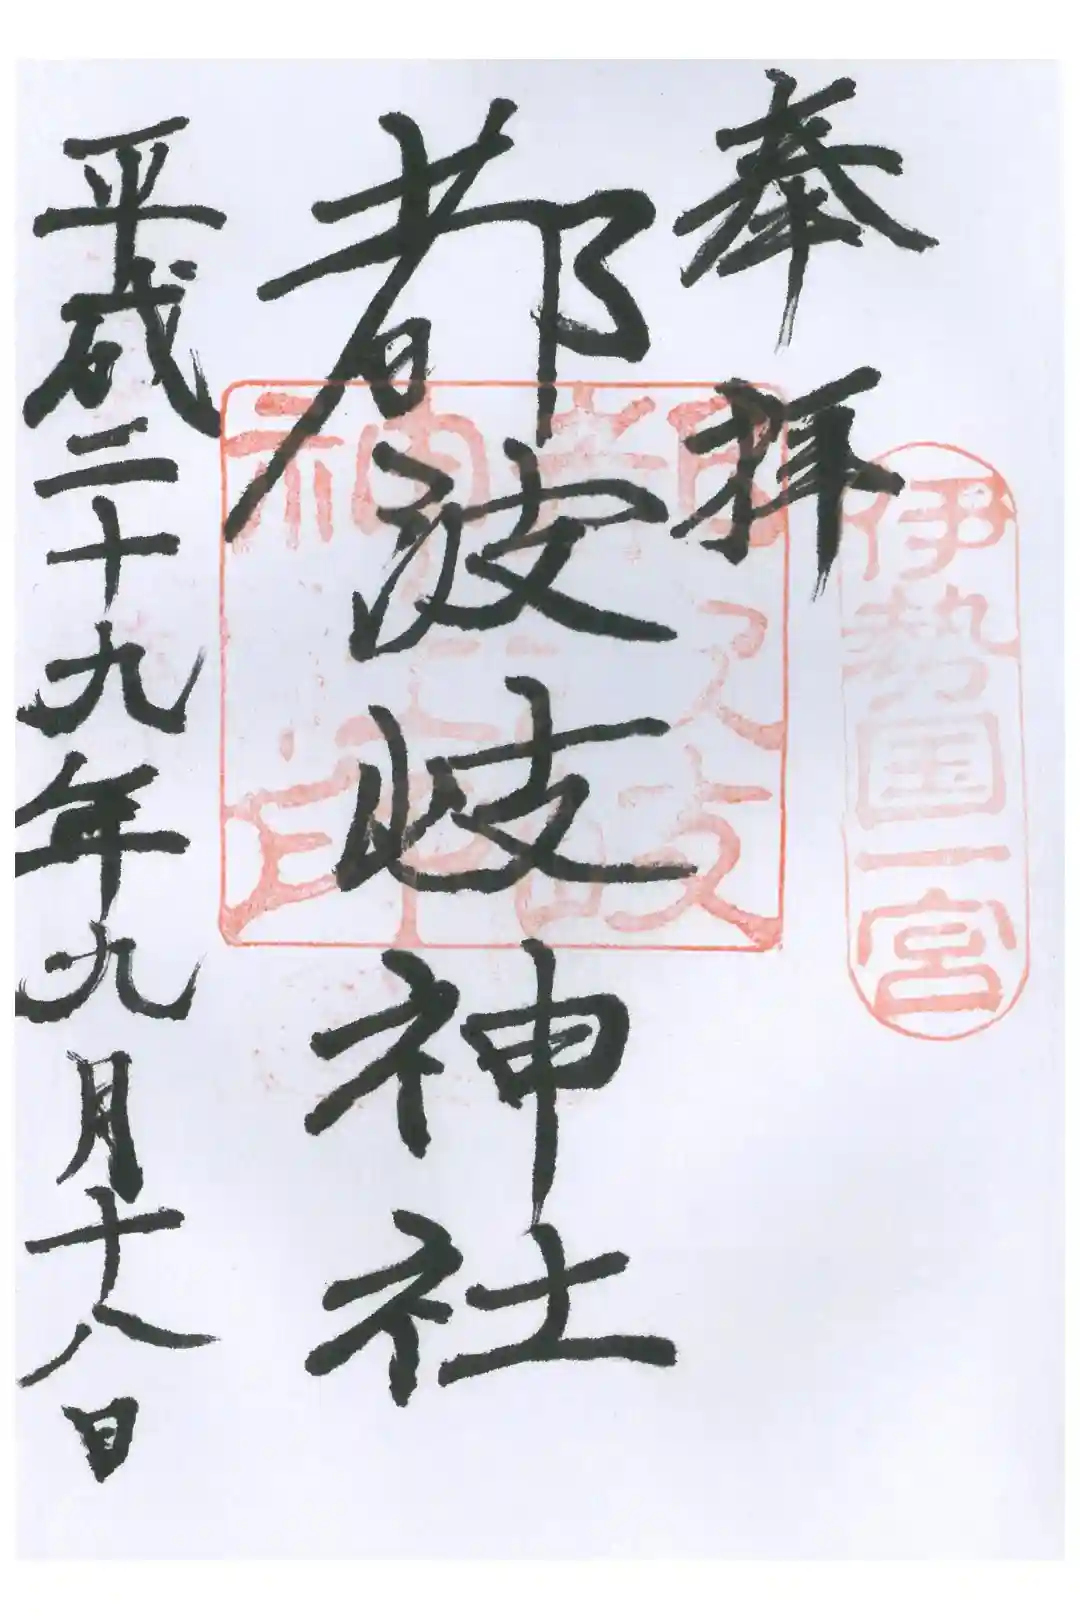 奉拝
伊勢国一宮
都波岐神社
都波岐
神社印
平成二十九年九月十八日